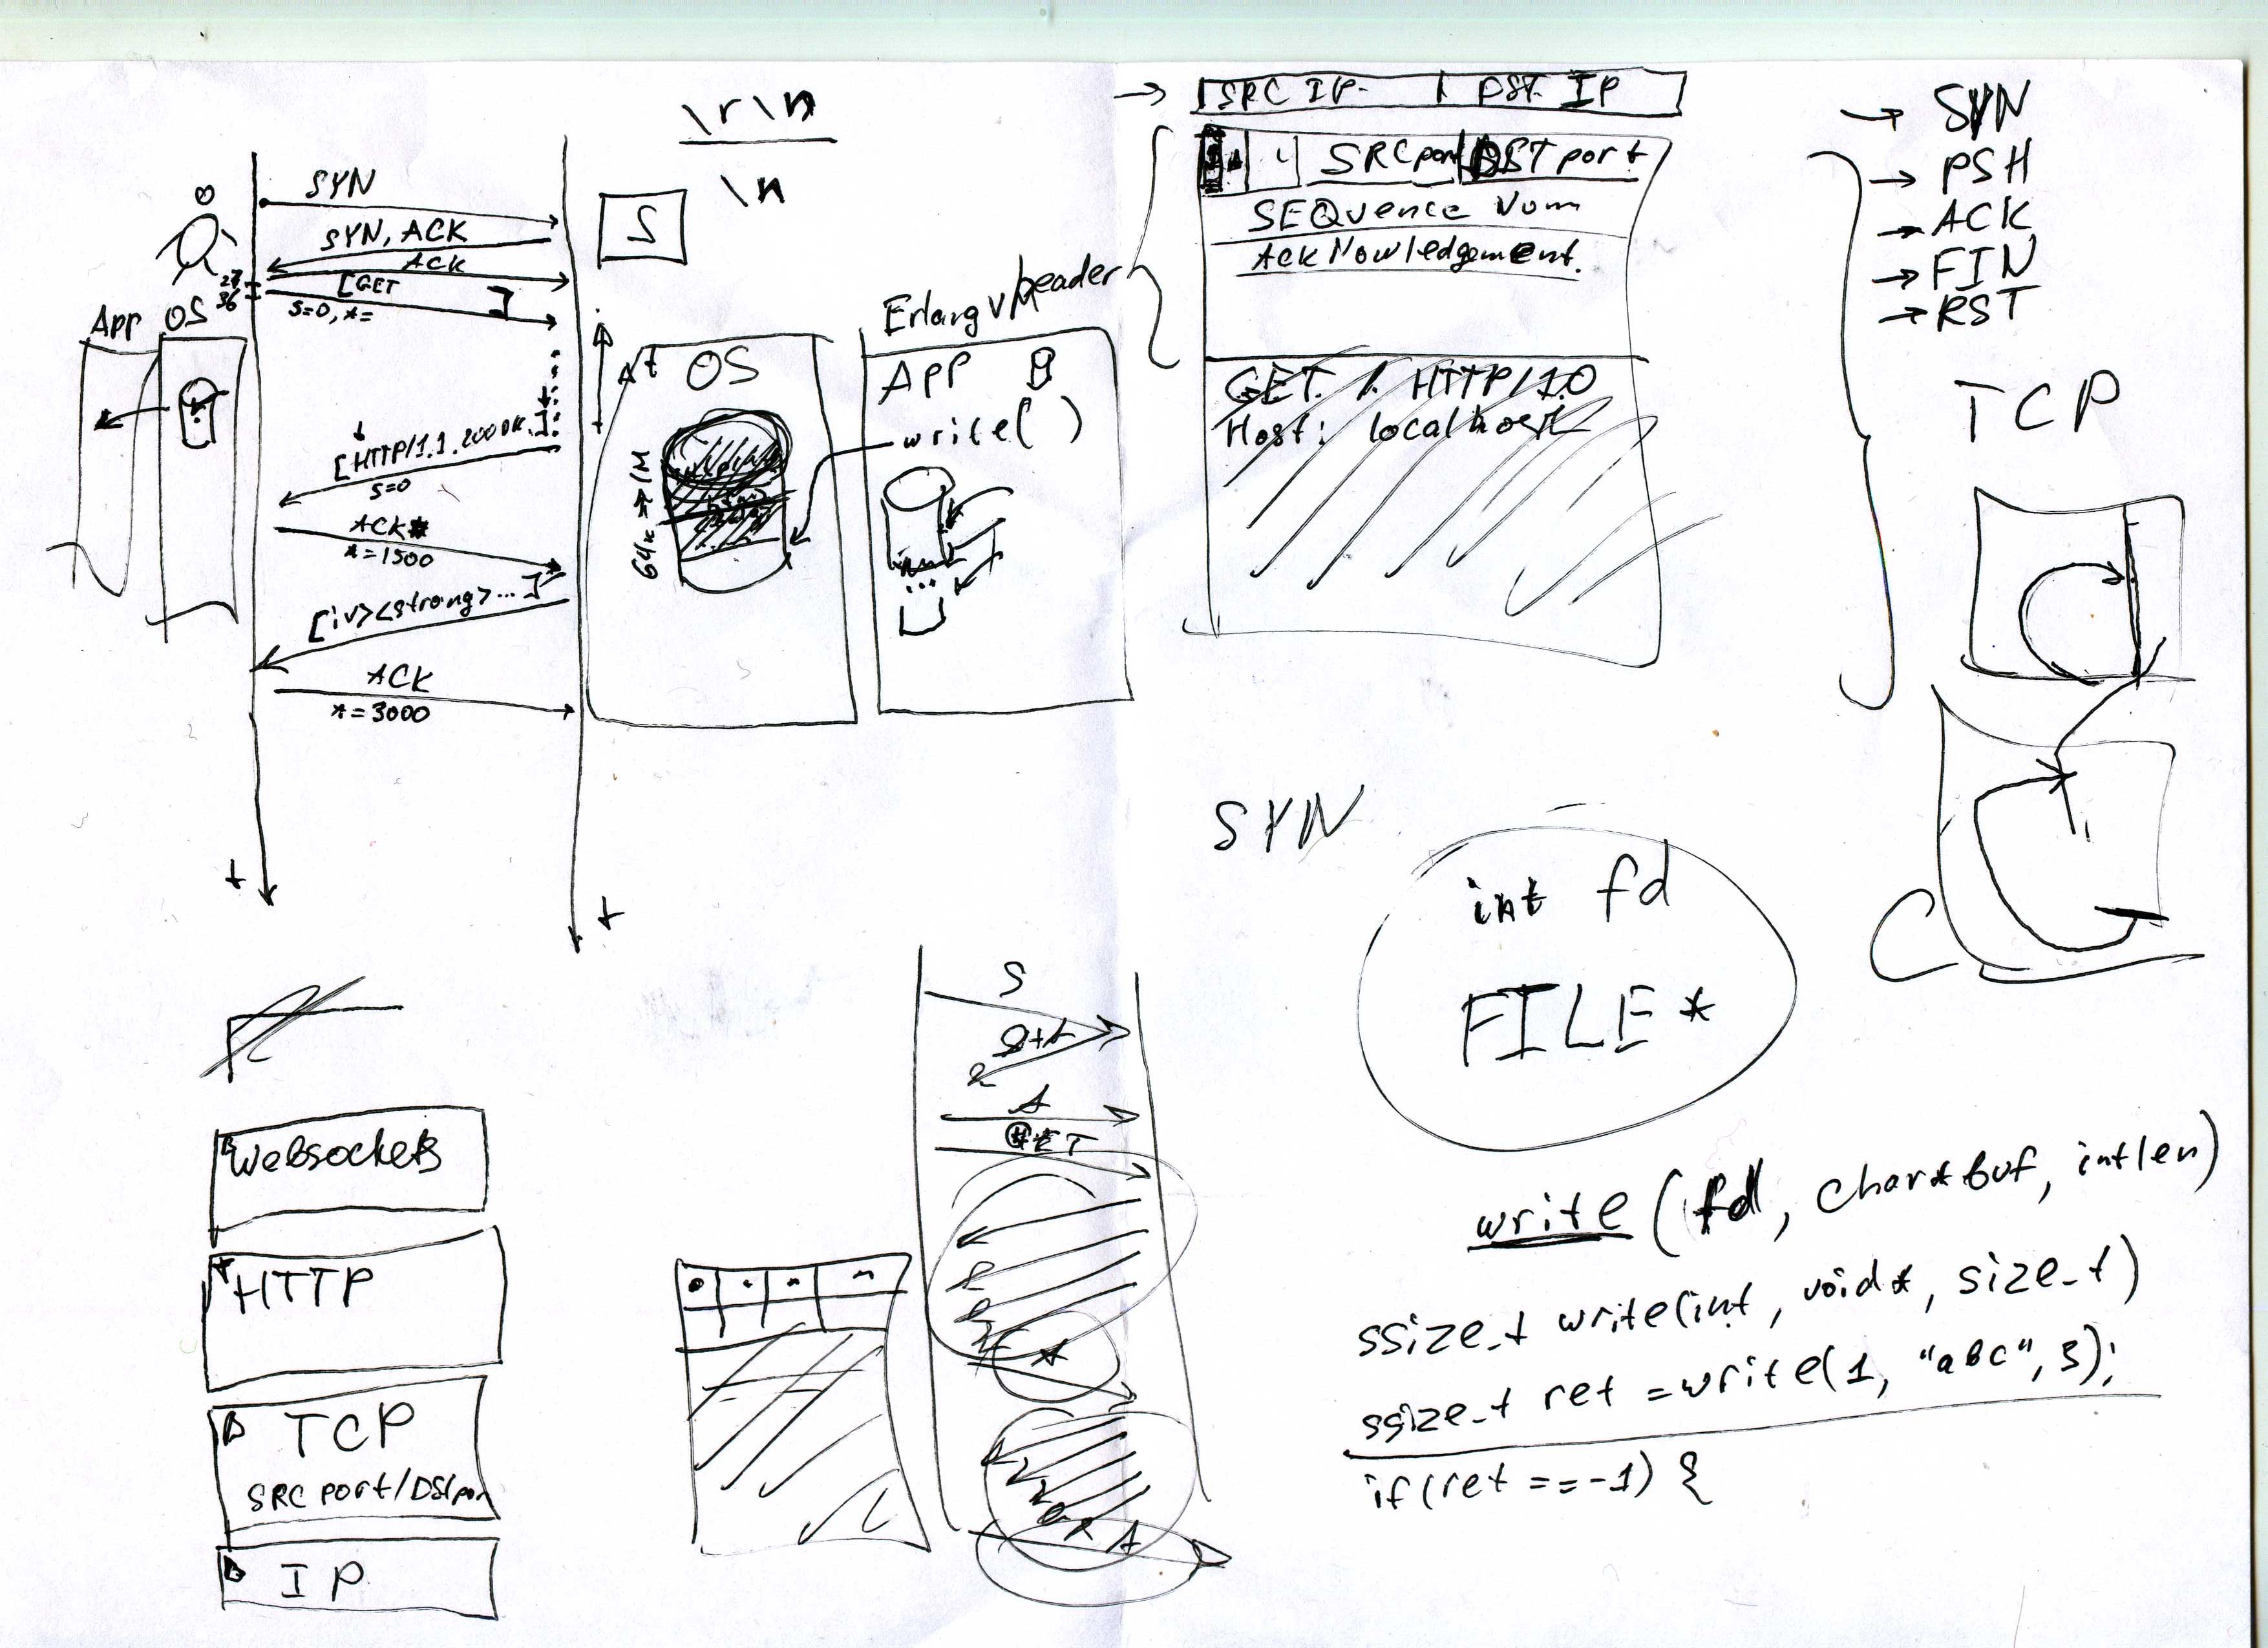 \r\n
\n
SYN
SYN, ACK
ACK
[GET ]
S=0, *=
27
36
App
OS
[HTTP/1.1. 200 OK. ]
S=0
ACK*
*=1500
[iv><strong>... ]
ACK
*=3000
t
t
S
t
OS
64k → 1M
Erlang VM
APP
write( )
header
SRC IP. DST IP
SRC port DST port
SEQuence Num
AckNowledgement.
GET / HTTP/1.0
Host: localhost
SYN
PSH
ACK
FIN
RST
TCP
SYN
int fd
FILE *
write (fd, char* buf, int len)
ssize_t write(int, void*, size_t)
ssize_t ret = write(1, "abc", 3);
if (ret == -1) {
S
S+A
A
GET
A
Websockets
HTTP
TCP
SRC port/DST port
IP